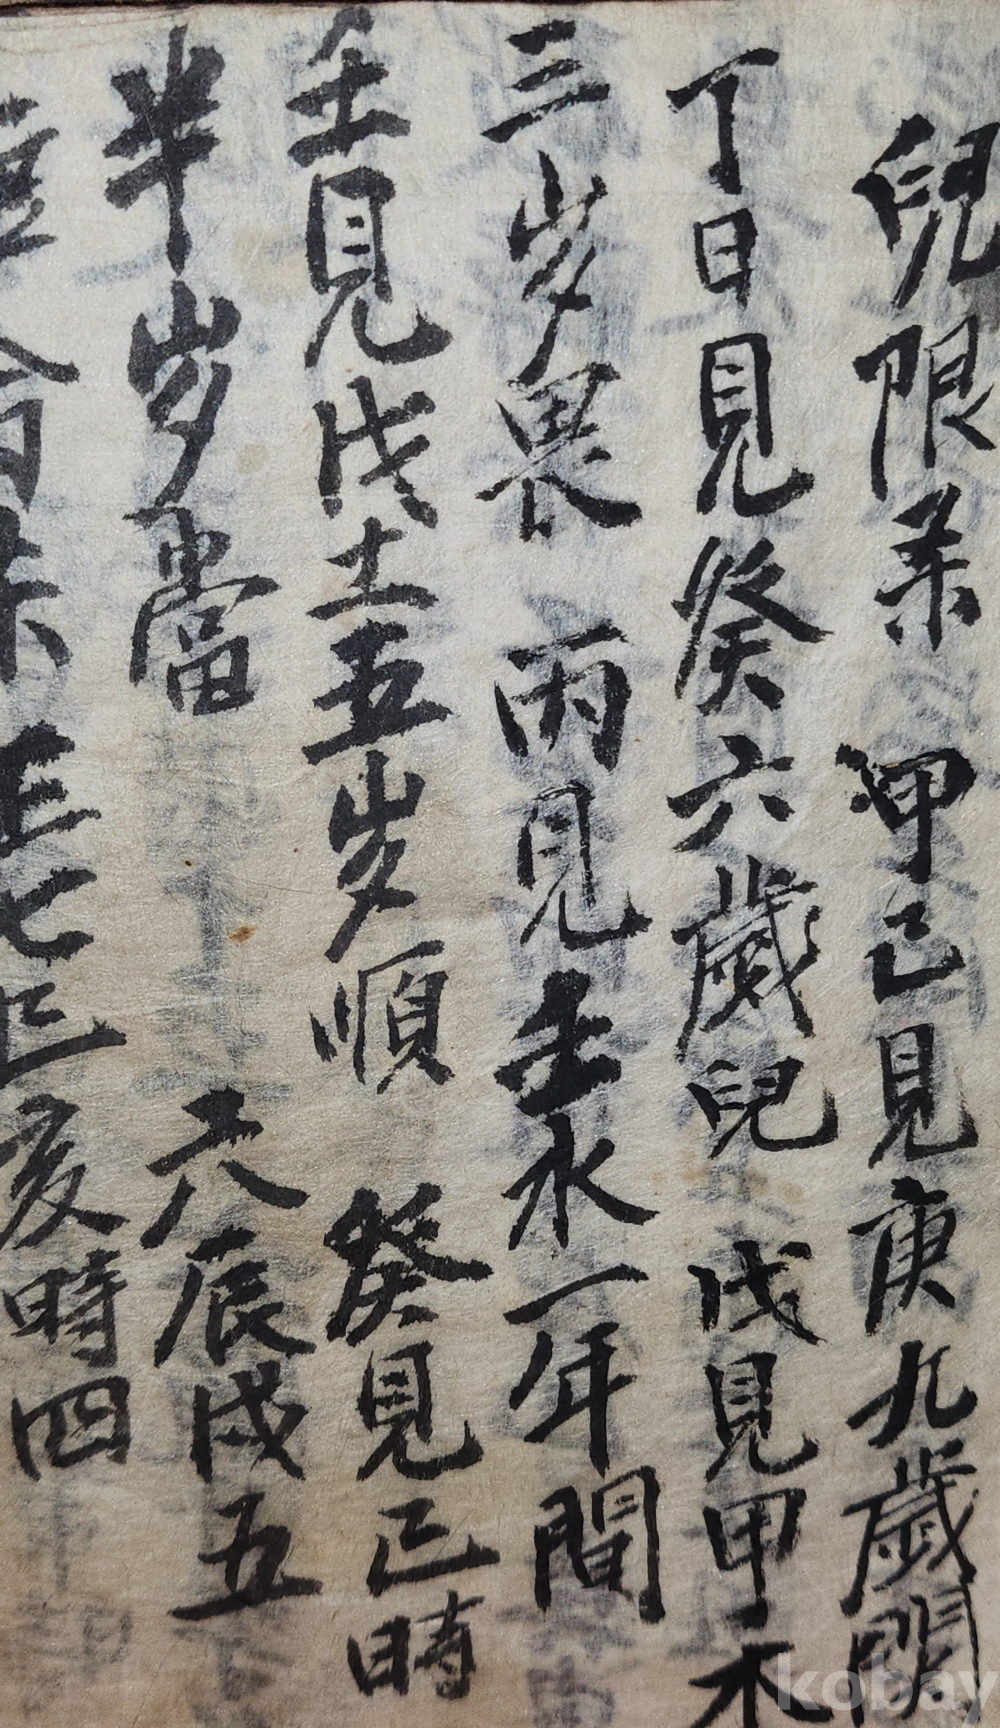 兒限係 甲己見庚九歲關
丁日見癸六歲兒 戊見甲木
三岁畏 丙見壬水一年間
壬見戊土五岁順 癸見己時
半岁當 六辰戌五
七 亥時四
kobay